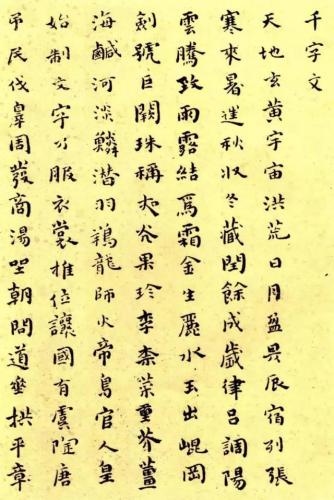 千字文
天地玄黃宇宙洪荒日月盈昃辰宿列張
寒來暑往秋收冬藏閏餘成歲律呂調陽
雲騰致雨露結爲霜金生麗水玉出崐岡
劍號巨闕珠稱夜光果珍李柰菜重芥薑
海鹹河淡鱗潛羽翔龍師火帝鳥官人皇
始制文字乃服衣裳推位讓國有虞陶唐
弔民伐辠周發商湯坐朝問道垂拱平章